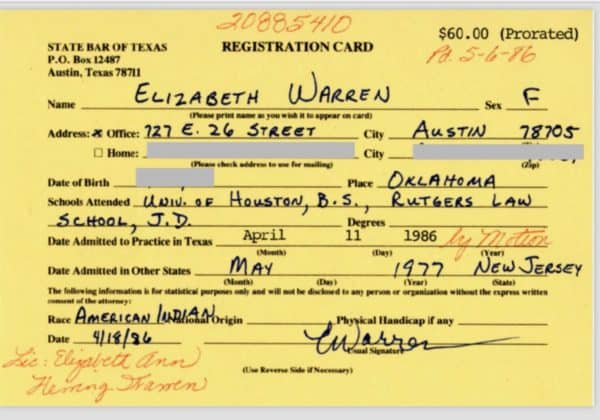 20885410
$60.00 (Prorated)
STATE BAR OF TEXAS REGISTRATION CARD Pd. 5-6-86
P.O. Box 12487
Austin, Texas 78711
Name ELIZABETH WARREN Sex F
(Please print name as you wish it to appear on card)
Address: x Office: 727 E. 26 STREET City AUSTIN 78705
☐ Home: City
(Please check address to use for mailing) (Zip)
Date of Birth Place OKLAHOMA
Schools Attended UNIV. OF HOUSTON, B.S., RUTGERS LAW
SCHOOL, J.D. Degrees
Date Admitted to Practice in Texas April 11 1986 by Motion
(Month) (Day) (Year)
Date Admitted in Other States MAY 1977 NEW JERSEY
(Month) (Day) (Year) (State)
The following information is for statistical purposes only and will not be disclosed to any person or organization without the express written
consent of the attorney:
Race AMERICAN INDIAN National Origin Physical Handicap if any
Date 4/18/86 EWarren
Usual Signature
Lic: Elizabeth Ann
Herring Warren
(Use Reverse Side if Necessary)